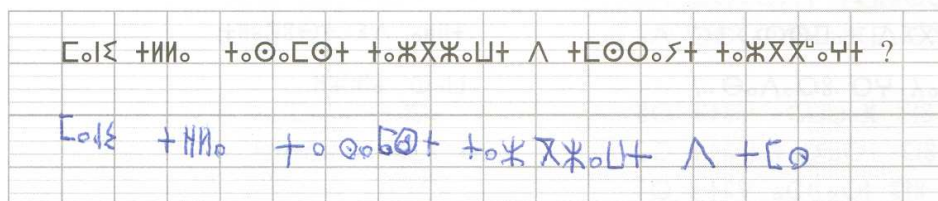 ⵎⴰⵏⵉ ⵜⵍⵍⴰ ⵜⴰⵙⴰⵎⵙⵜ ⵜⴰⵣⴳⵣⴰⵡⵜ ⴷ ⵜⵎⵙⵔⴰⵢⵜ ⵜⴰⵣⴳⴳⵯⴰⵖⵜ ?
ⵎⴰⵏⵉ ⵜⵍⵍⴰ ⵜⴰ ⵙⴰⵎⵙⵜ ⵜⴰⵣ ⴳⵣⴰⵡⵜ ⴷ ⵜⵎⵙ